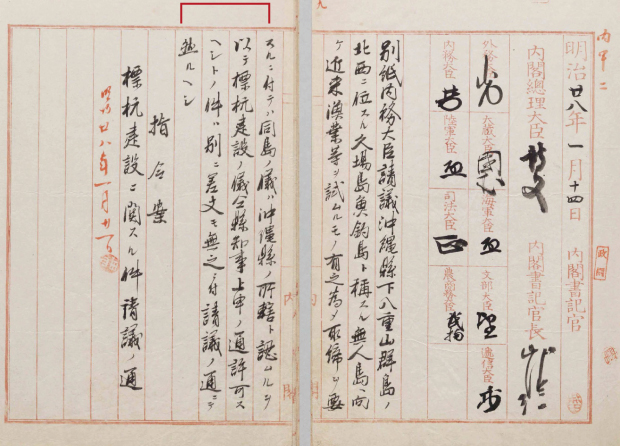 内甲二
明治廿八年一月十四日 内閣書記官
内閣總理大臣 内閣書記官長
外務大臣 大藏大臣 海軍大臣 文部大臣 遞信大臣
内務大臣 陸軍大臣 司法大臣 農商務大臣
別紙内務大臣請議沖縄縣下八重山群島ノ
北西ニ位スル久場島魚釣島ト称スル無人島ヘ向
ケ近来漁業等ヲ試ムルモノ有之為メ取締ヲ要
スルニ付テハ同島ノ儀ハ沖縄縣ノ所轄ト認ムルヲ
以テ標杭建設ノ儀仝縣知事上申ノ通許可ス
ヘシトノ件ハ別ニ差支モ無之ニ付請議ノ通ニテ
然ルヘシ
指令案
標杭建設ニ関スル件請議ノ通
明治廿八年一月廿一日
内閣